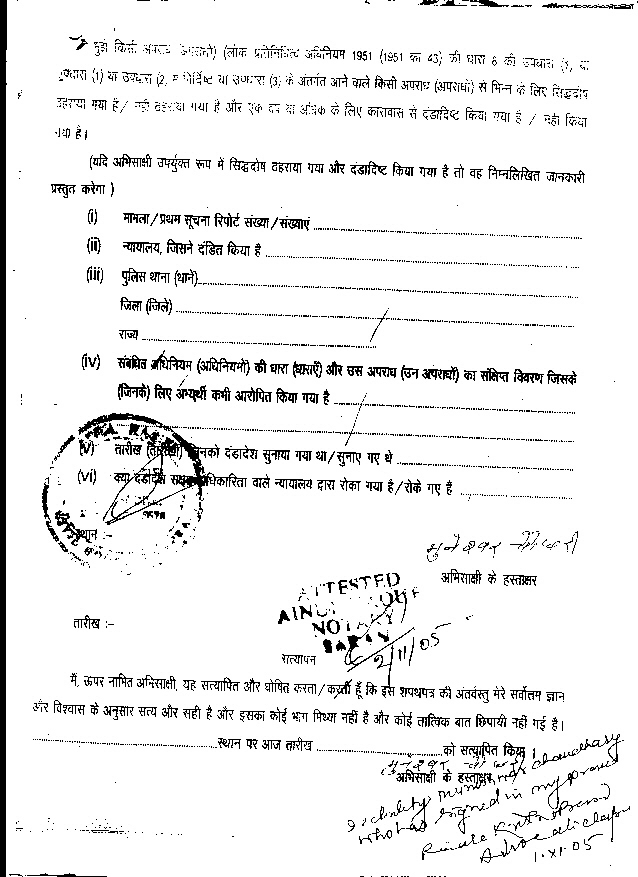 मुझे किसी अपराध (अपराधों) (लोक प्रतिनिधित्व अधिनियम 1951 (1951 का 43) की धारा 8 की उपधारा (1) या
उपधारा (1) या उपधारा (2) में निर्दिष्ट या उपधारा (3) के अंतर्गत आने वाले किसी अपराध (अपराधों) से भिन्न के लिए सिद्धदोष
ठहराया गया है / नहीं ठहराया गया है और एक वर्ष या अधिक के लिए कारावास से दंडादिष्ट किया गया है / नहीं किया
गया है।
(यदि अभिसाक्षी उपर्युक्त रूप में सिद्धदोष ठहराया गया और दंडादिष्ट किया गया है तो वह निम्नलिखित जानकारी
प्रस्तुत करेगा )
(i) मामला/प्रथम सूचना रिपोर्ट संख्या/संख्याएं
(ii) न्यायालय, जिसने दंडित किया है
(iii) पुलिस थाना (थाने)
जिला (जिले)
राज्य
(iv) संबंधित अधिनियम (अधिनियमों) की धारा (धाराएँ) और उस अपराध (उन अपराधों) का संक्षिप्त विवरण जिसके
(जिनके) लिए अभ्यर्थी कभी आरोपित किया गया है
(v) तारीख (तारीखें) जिनको दंडादेश सुनाया गया था/सुनाए गए थे
(vi) क्या दंडादेश सक्षम अधिकारिता वाले न्यायालय द्वारा रोका गया है/रोके गए हैं
स्थान :-
मुनेश्वर चौधरी
अभिसाक्षी के हस्ताक्षर
ATTESTED
NOTARY
SARAN
2/11/05
तारीख :-
सत्यापन
मैं, ऊपर नामित अभिसाक्षी, यह सत्यापित और घोषित करता/करती हूँ कि इस शपथपत्र की अंतर्वस्तु मेरे सर्वोत्तम ज्ञान
और विश्वास के अनुसार सत्य और सही है और इसका कोई भाग मिथ्या नहीं है और कोई तात्विक बात छिपायी नहीं गई है।
स्थान पर आज तारीख को सत्यापित किया।
मुनेश्वर चौधरी
अभिसाक्षी के हस्ताक्षर
I identify Muneshwar Chaudhary
who has signed in my presence
Advocate
1.XI.05